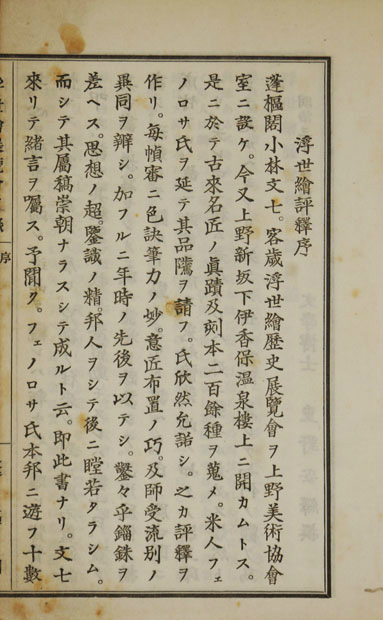 浮世繪評釋序
蓬樞閣小林文七。客歲浮世繪歷史展覽會ヲ上野美術協會
室ニ設ケ。今又上野新坂下伊香保溫泉樓上ニ開カムトス。
是ニ於テ古來名匠ノ眞蹟及刻本二百餘種ヲ蒐メ。米人フェ
ノロサ氏ヲ延テ其品隲ヲ請フ。氏欣然允諾シ。之カ評釋ヲ
作リ。每幀審ニ色訣筆力ノ妙。意匠布置ノ巧。及師受流別ノ
異同ヲ辯シ。加フルニ年時ノ先後ヲ以テシ。鑿々乎錙銖ヲ
差ヘス。思想ノ超。鑒識ノ精。邦人ヲシテ後ニ瞠若タラシム。
而シテ其屬稿崇朝ナラスシテ成ルト云。即此書ナリ。文七
來リテ緒言ヲ囑ス。予聞ク。フェノロサ氏本邦ニ遊フ十數
序